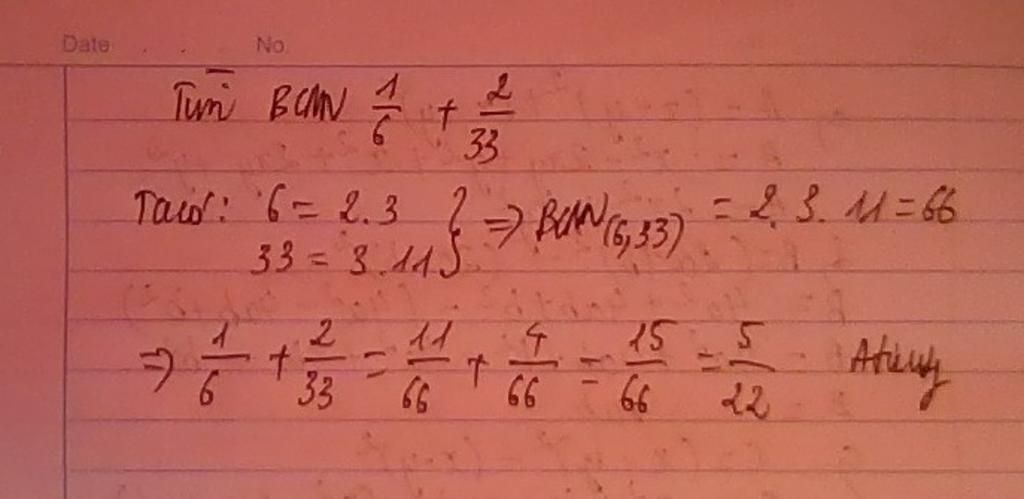 Date . . No.
Tìm BCNN 1/6 + 2/33
Ta có: 6 = 2.3
33 = 3.11 } => BCNN(6,33) = 2.3.11 = 66
=> 1/6 + 2/33 = 11/66 + 4/66 = 15/66 = 5/22